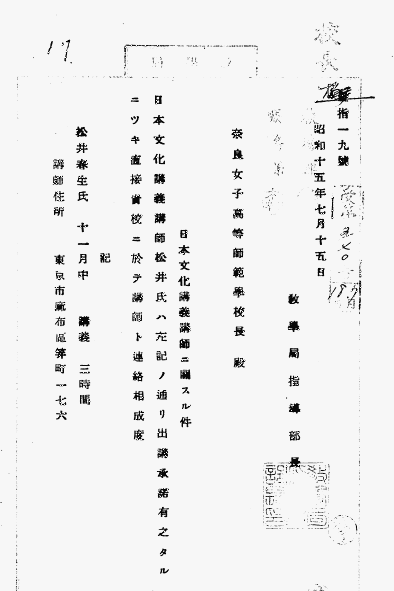 校長
指一九號
昭和十五年七月十五日
教學局指導部長
奈良女子高等師範學校長 殿
日本文化講義講師ニ關スル件
日本文化講義講師松井氏ハ左記ノ通リ出講承諾有之タル
ニツキ直接貴校ニ於テ講師ト連絡相成度
記
松井春生氏 十一月中 講義 三時間
講師住所 東京市麻布區笄町一七六
17